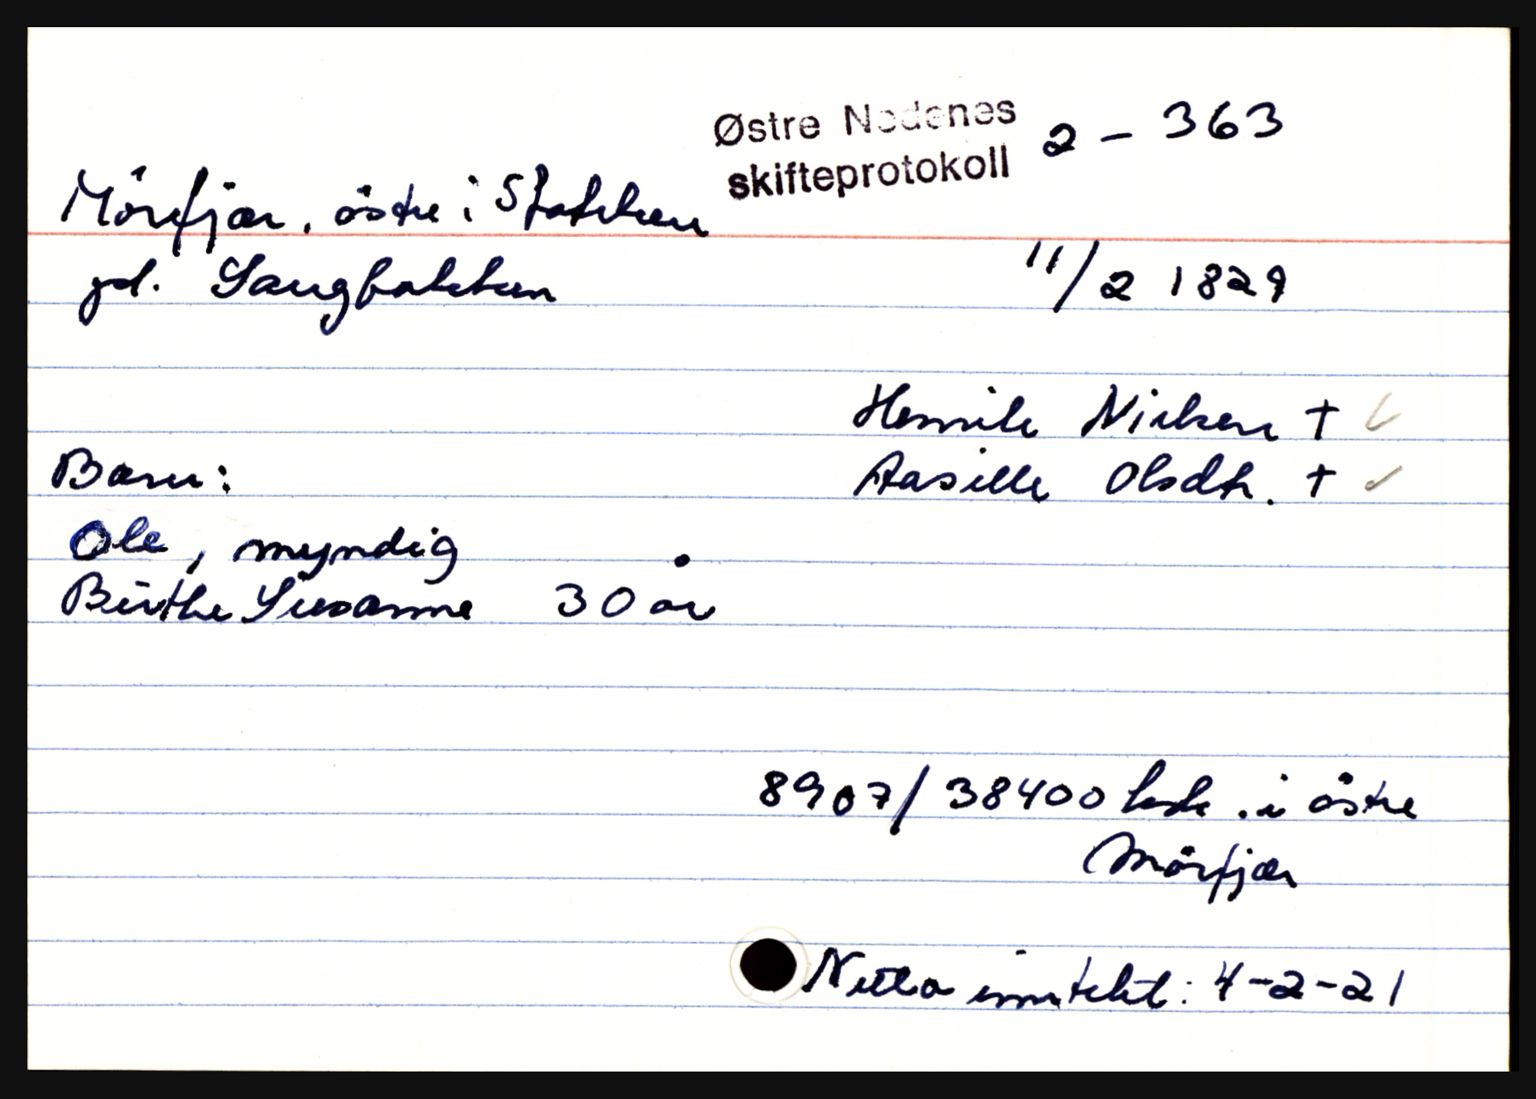 Østre Nedenes 2 - 363
skifteprotokoll
Mörfjær, östre i Stokken
gd. Saugbakken
11/2 1829
Henrik Nielsen †
Aasille Olsdtr. †
Barn:
Ole, myndig
Birthe Susanne 30 år
8907/38400 i östre
Mörfjær
Netto inntekt: 4-2-21